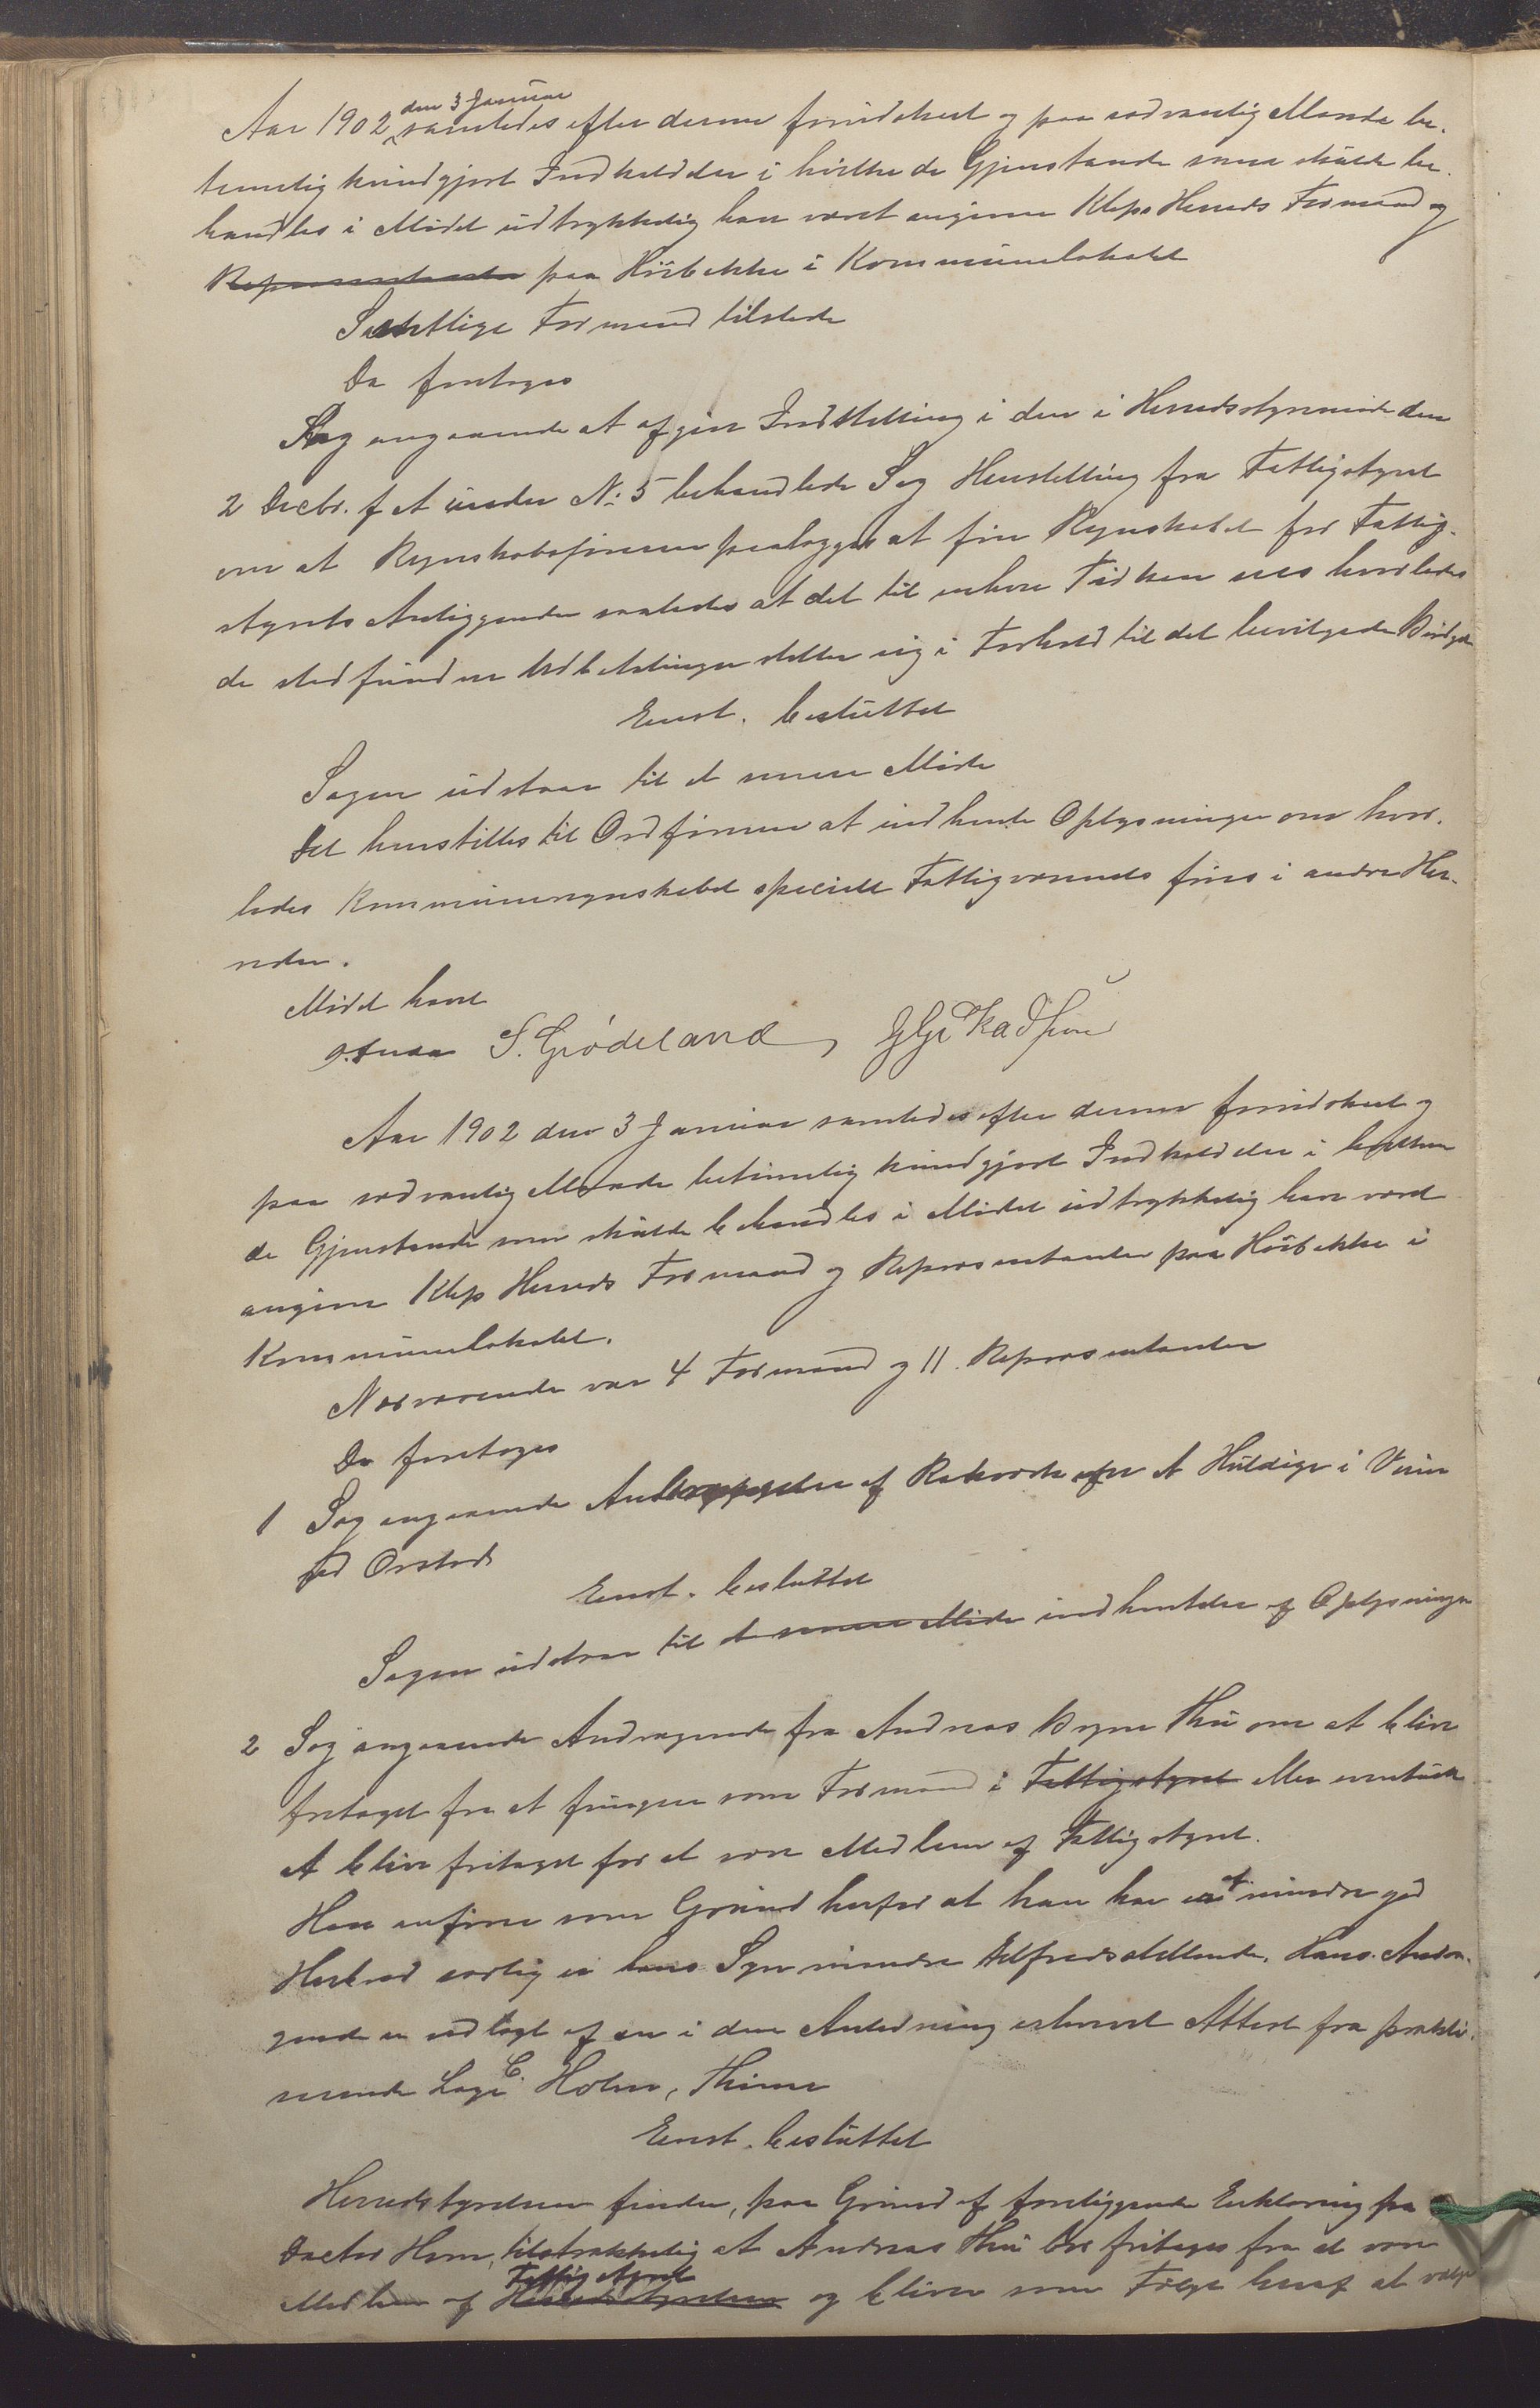 Aar 1902 den 3 Januar samledes efter derom forudskeet og paa sædvanlig Maade be-
timelig kundgjort Indkaldelse i hvilke de Gjenstande som skulde be-
handles i Mødet udtrykkelig har været angivne Klep Herreds Formænd og
Repræsentanter paa Hørbekke i Kommunelokalet
Samtlige Formænd tilstede
Da foretoges
Sag angaaende at afgive Indstilling i den i Herredsstyremøde den
2 Decbr. f A under No 5 behandlede Sag Henstilling fra Fattigstyret
om at Regnskabsføreren paalægges at føre Regnskabet for Fattig-
styrets Anliggender saaledes at det til enhver Tid kan sees hvorledes
de stedfundne Udbetalinger stiller sig i Forhold til det bevilgede Budget
Enst. besluttet
Sagen udstaar til et senere Møde
Det henstilles til Ordføreren at indhente Oplysninger om hvor-
ledes Kommuneregnskabet specielt Fattigvæsenets føres i andre Her-
reder.
Mødet hævet
S. Grødeland,
Aar 1902 den 3 Januar samledes efter derom forudskeet og
paa sædvanlig Maade betimelig kundgjort Indkaldelse i hvilken
de Gjenstande som skulde behandles i Mødet udtrykkelig har været
angivne Klep Herreds Formænd og Repræsentanter paa Hørbekke i
Kommunelokalet.
Nærværende var 4 Formænd og 11 Repræsentanter
Da foretoges
1 Sag angaaende af Rekværk efter A i
ved Orstad
Enst. besluttet
Sagen udstaar til et senere Møde indhentelse af Oplysninger
2 Sag angaaende Andragende fra Andreas Bryne Thu om at blive
fritaget fra at fungere som Formand i Fattigstyret eller eventuelt
at blive fritaget for at være Medlem af Fattigstyret.
Han anfører som Grund herfor at han har et mindre god
Helbred særlig er hans Syn mindre tilfredsstillende. Hans Andra-
gende er vedlagt af en i den Anledning erhvervet Attest fra prakti-
serende Læge C. Holm, Thime
Enst. besluttet
Herredsstyrelsen finder, paa Grund af foreliggende Erklæring fra
Doctor Holm, tilstrækkelig at Andreas Thu bør fritages fra at være
Medlem af Herredsstyrelsen Fattigstyret og bliver som Følge heraf at vælge